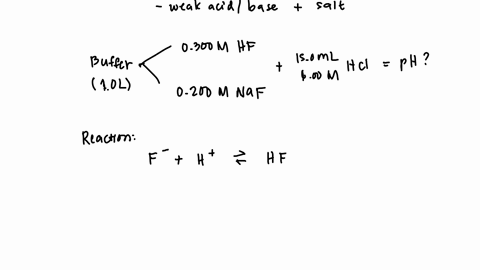 - weak acid/base + salt
0.300 M HF
Buffer
(1.0L)
15.0mL
6.00 M
+ HCl = pH?
0.200 M NaF
Reaction:
F⁻ + H⁺ ⇌ HF